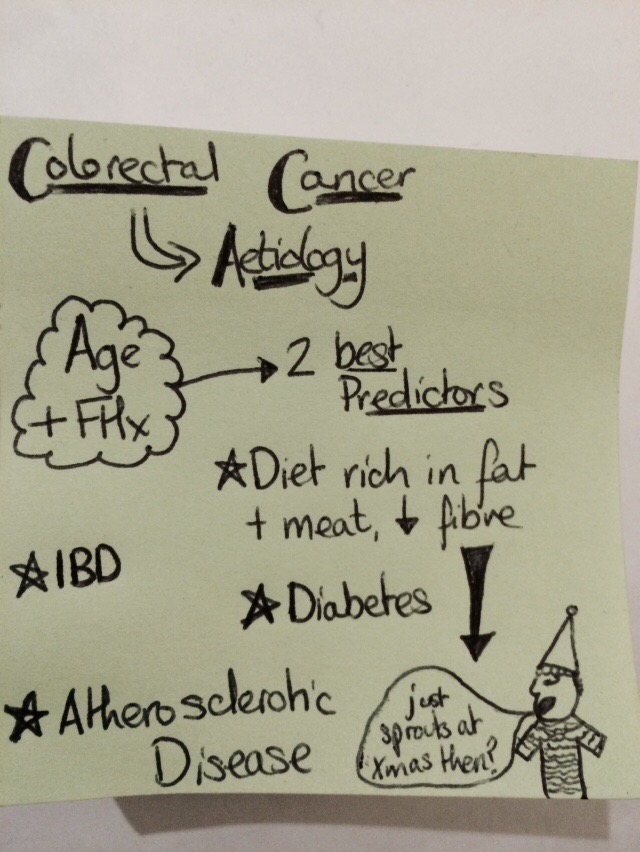 Colorectal Cancer
Aetiology
Age
+ FHx
2 best
Predictors
Diet rich in fat
+ meat, ↓ fibre
IBD
Diabetes
Atherosclerotic
Disease
just
sprouts at
Xmas then?